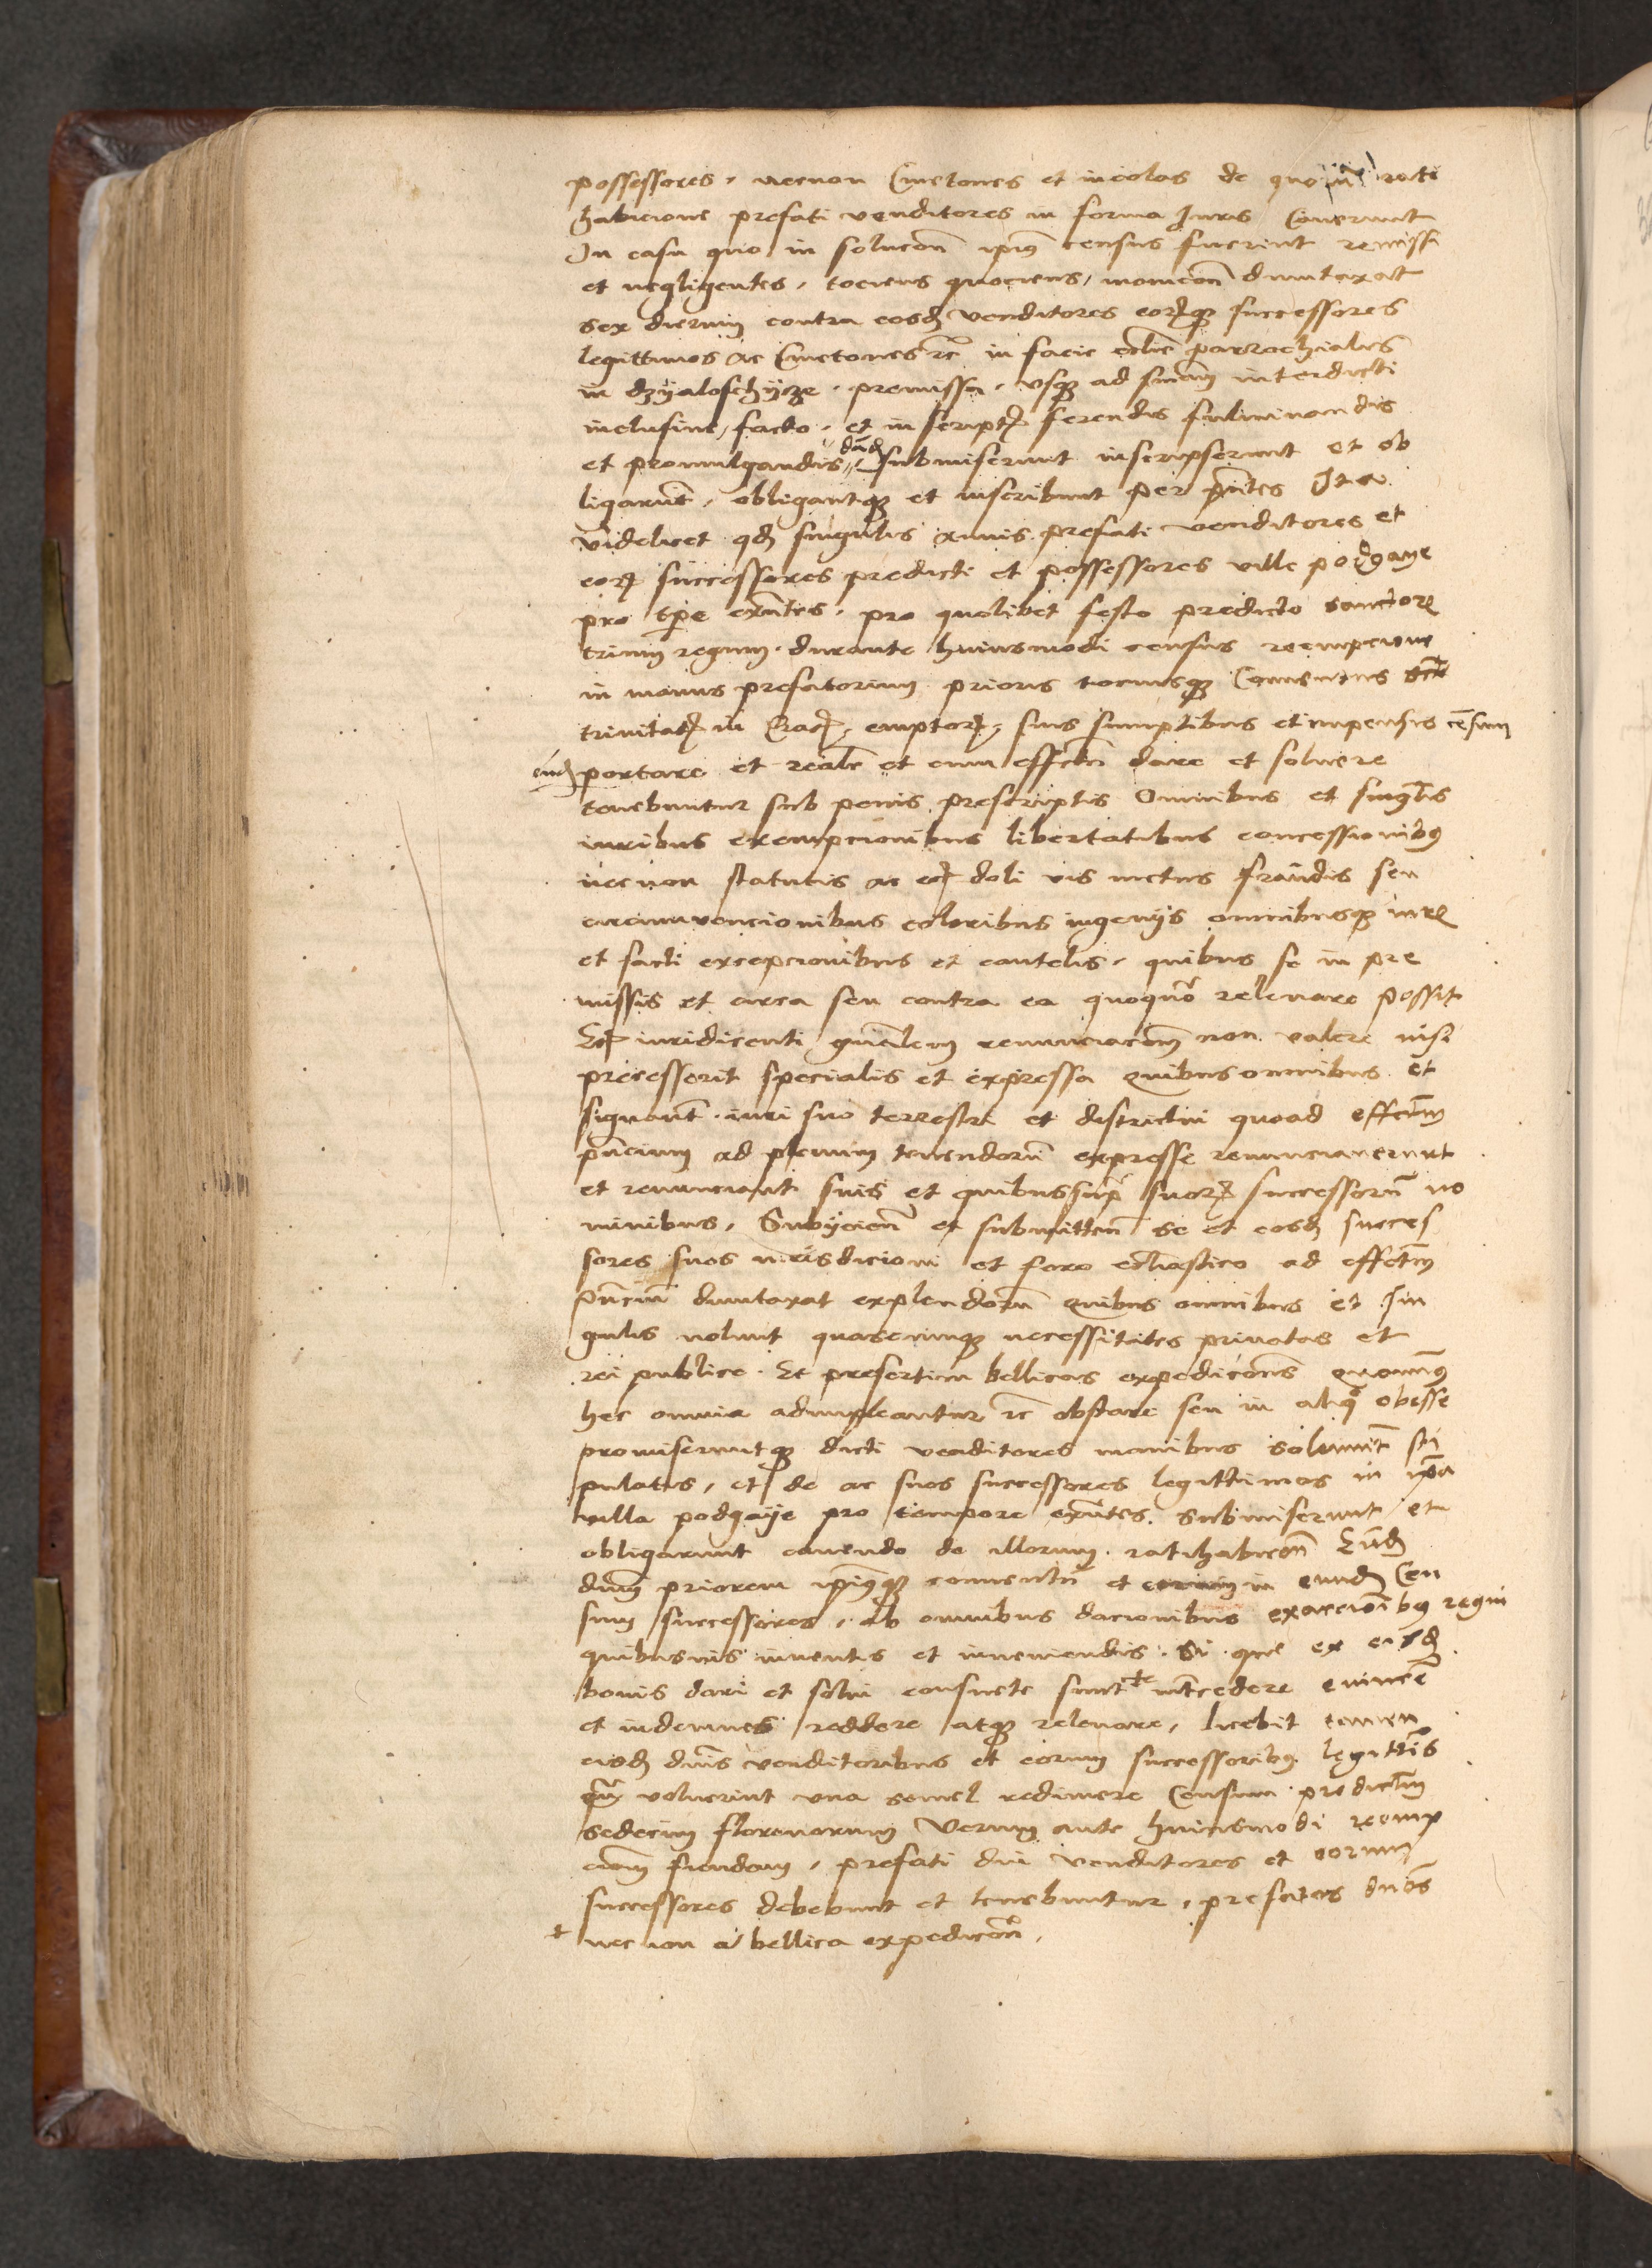 possessores, necnon Cmetones et incolas de quorum rati
habicione prefati venditores in forma Juris Caverunt
In casu quo in solucone ipius census fuerint remissi
et negligentes, tociens quociens, monicone dumtaxat
sex dierum contra eosdem venditores eorumque successores
legittimos ac Cmetones etc in facie ecclie parrochialis
in dzyaloschycze, premissa, usque ad sniam interdicti
inclusive, facto, et in scriptis ferendis fulminandis
et promulgandis submiserunt inscripserunt et ob
ligarunt, obligantque et inscribunt per pntes Ita
videlicet quod singulis annis prefati venditores et
eorum successores predicti et possessores ville podgaye
pro tpe exntes, pro quolibet festo predicto sanctorum
trium regum, durante huiusmodi census reempcione
in manus prefatorum prioris tociusque Conventus scte
trinitatis in Crac, emptorum, suis sumptibus et impensis censum
eundem portare et realr et cum effectu dare et solvere
tenebuntur sub penis prescriptis Omnibus et singulis
iuribus exempcionibus libertatibus concessionibus
necnon statutis ac doli vis metus fraudis seu
circumvencionibus coloribus ingeniis omnibusque iuris
et facti excepcionibus et cautelis, quibus se in pre
missis et circa seu contra ea quoquomo relevare possit
Et iuridicenti gnalem renunciacionem non valere nisi
precesserit specialis et expressa Quibus omnibus et
signant iuri suo terrestri et districtui quoad effectum
pncium ad plenum tenendorum expresse renunciaverunt
et renunciant suis et quibus supra suorum successorum no
minibus, Subiicien et submitten se et eosdem succes
sores suos iurisdicioni et foro ecclesiastico ad effectum
Pncium dumtaxat explendorum Quibus omnibus et sin
gulis nolunt quascumque necessitates privatas et
rei publice. Et presertim bellicas expediciones quominus
hec omnia adimpleantur etc obstare seu in aliquo obesse
promiseruntque dicti venditores manibus solemniter sti
pulatis, et se ac suos successores legittimos in ipsa
villa podgaye pro tempore exntes, submiserunt et
obligarunt cavendo de illorum ratihabicione Eundem
dnum priorem ipiusque conventum et eorum in eundem Cen
sum successores, ab omnibus dacionibus exaccionibus regni
quibusvis inventis et inveniendis, Si que ex eisdem
bonis dari et solvi consuete sunt + intercedere evincere
et indemnes reddere atque relevare, licebit tamen
eisdem dnis venditoribus et eorum successoribus legittimis
quum voluerint una semel redimere Censum predictum
sedecim florenorum Verum ante huiusmodi reemp
cionem fiendam, prefati dni venditores et eorum
successores debebunt et tenebuntur, prefatos dnos
+ necnon a bellica expedicone,